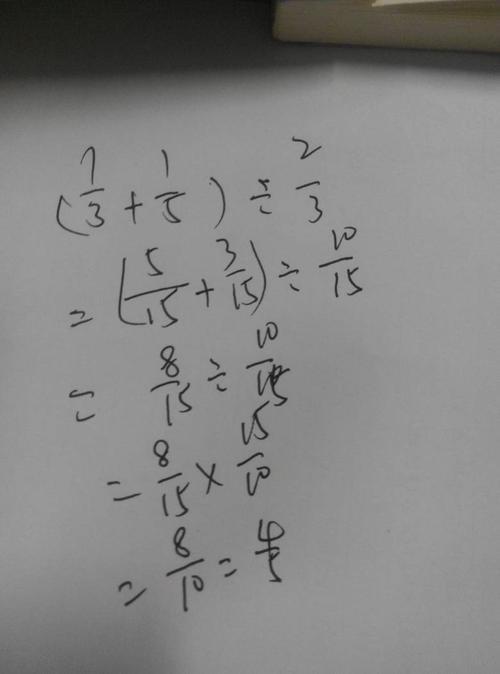 (1/3 + 1/5) ÷ 2/3
= (5/15 + 3/15) ÷ 10/15
= 8/15 ÷ 10/15
= 8/15 × 15/10
= 8/10 = 4/5